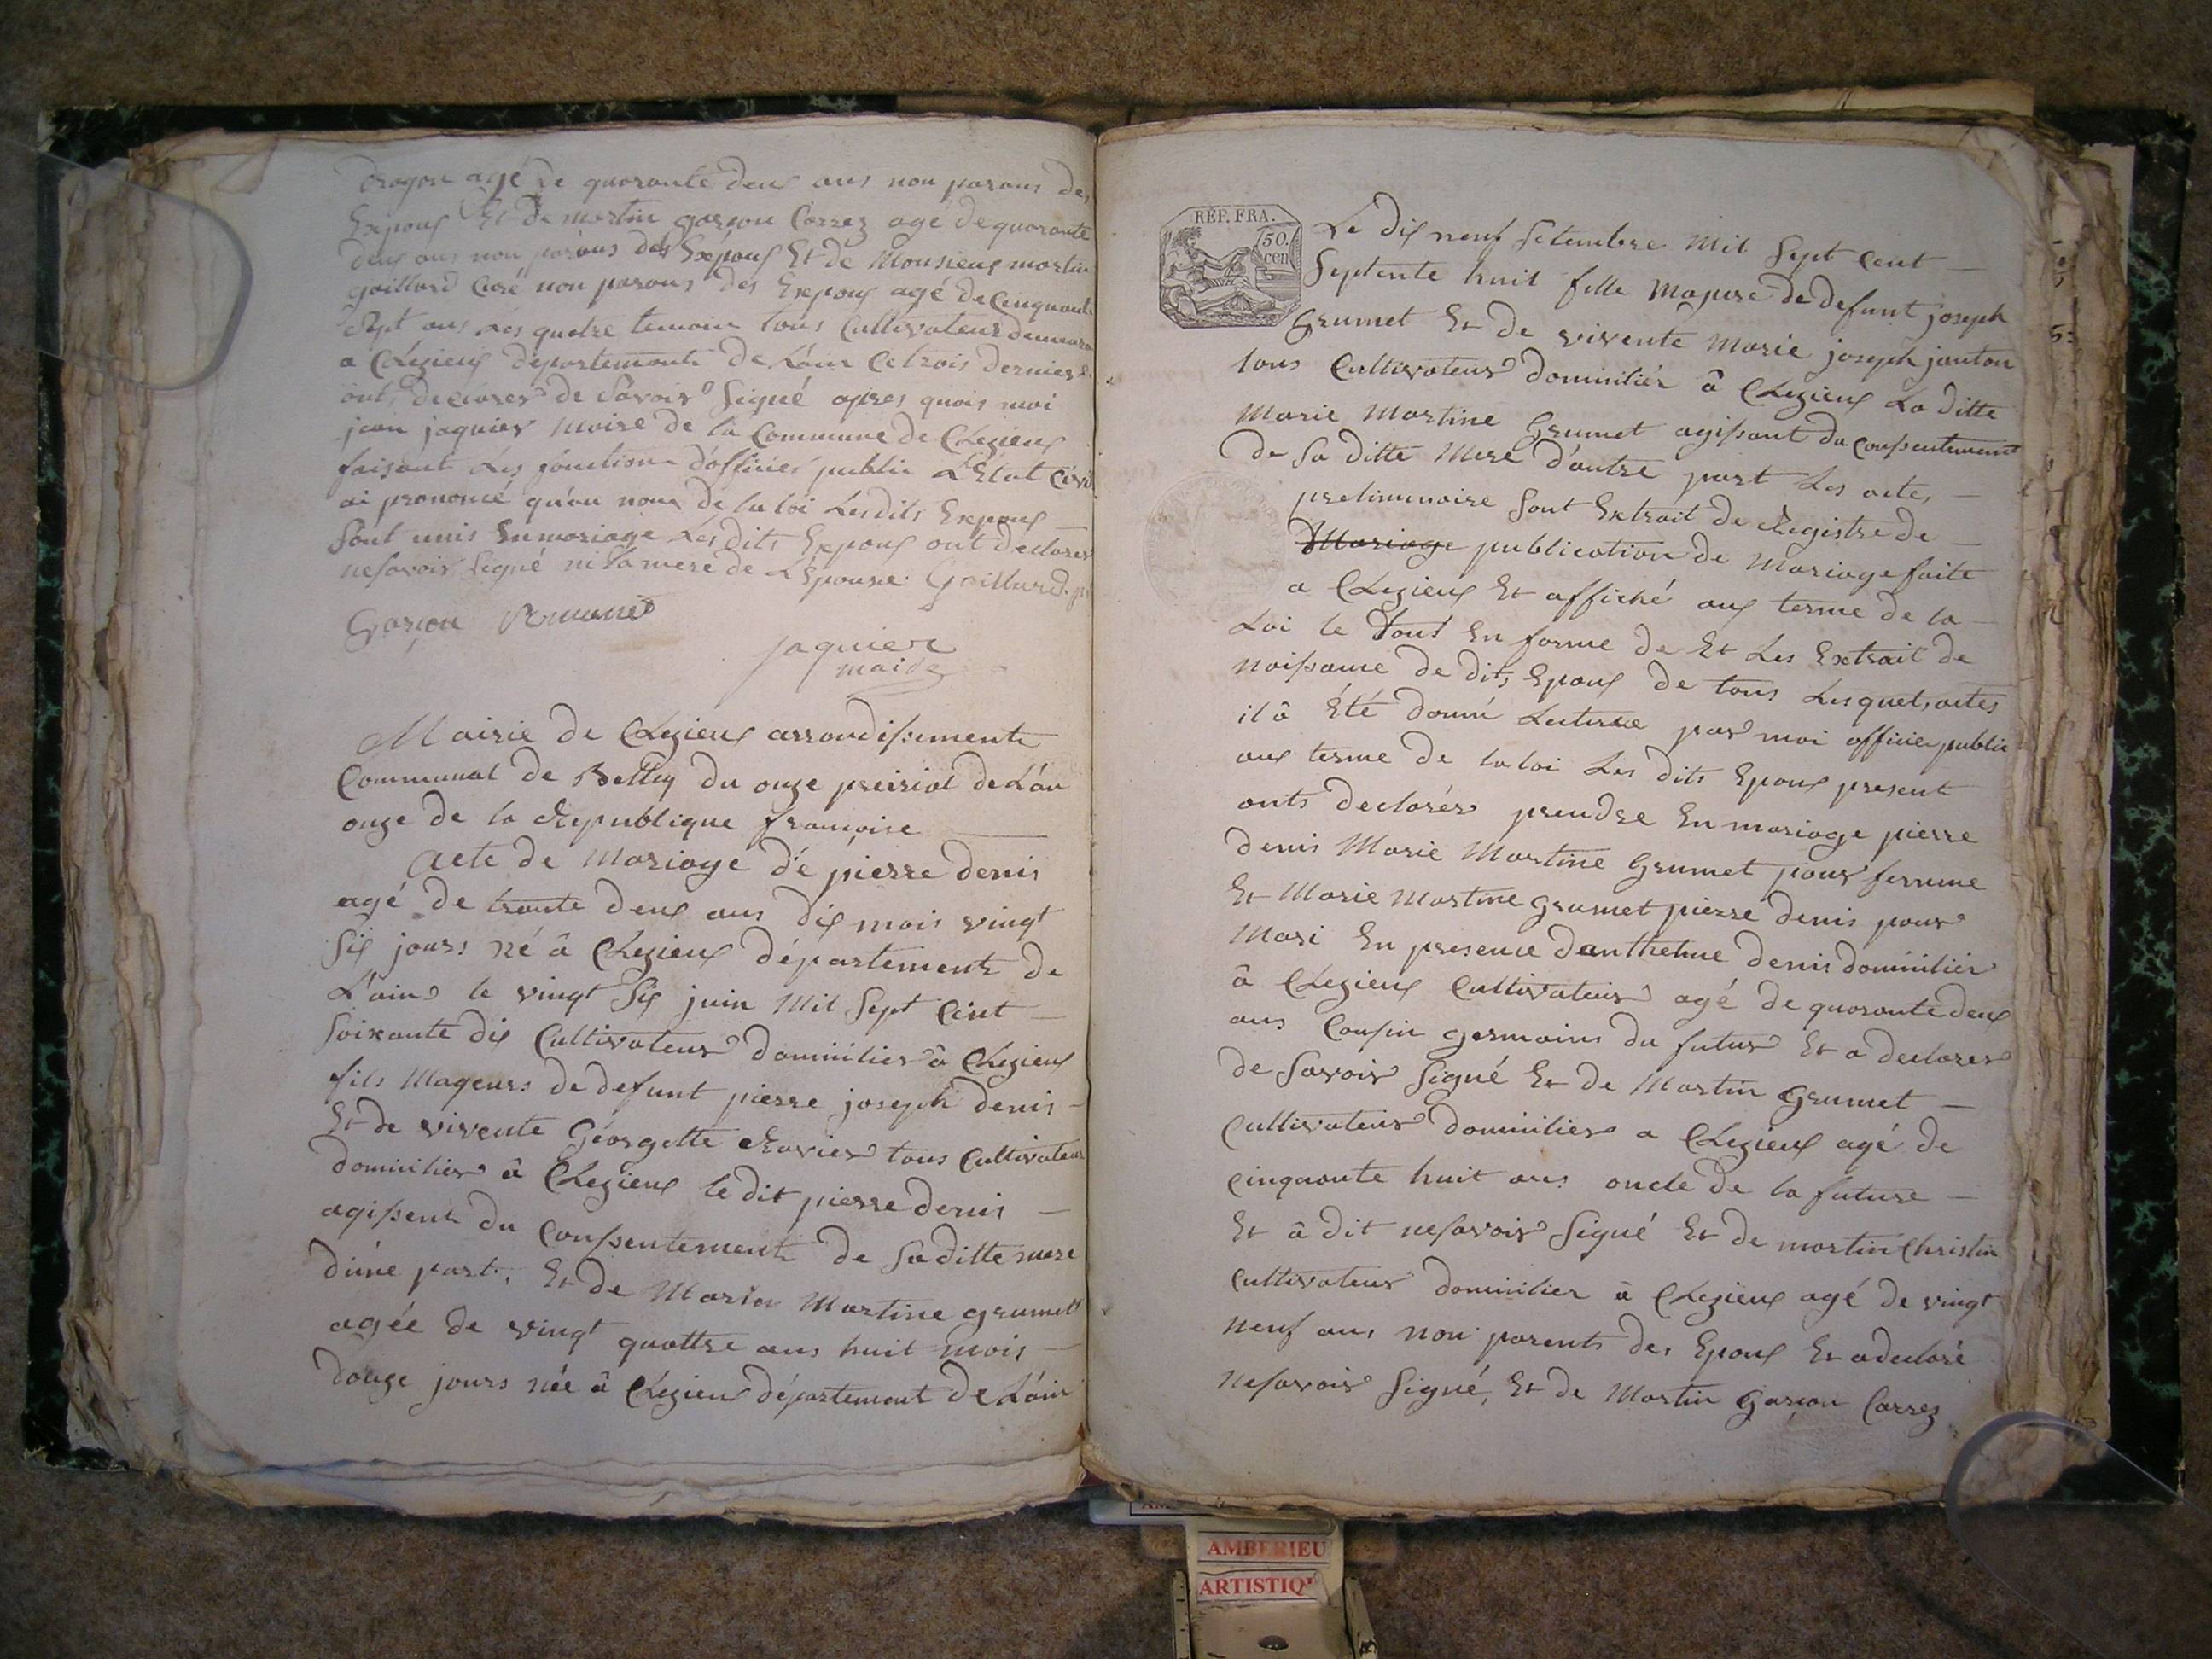 dragon agé de quarante deux ans non parans des
Expoux Et de martin garçon Carrez age de quarante
deux ans non parans des Expoux Et de Monsieur martin
gaillard Curé non parans des Expoux agé de Cinquante
Sept ans Les quatre temoin tous Cultivateur demeura
a Clezieux departemente de L'ain Ce trois dernier
onts declarer de Savoir Signé apres quois moi
jean jaquier Maire de la Commune de Clezieux
faisant Les fonction d'officier public L'Etat Civil
ai prononcé qu'au nom de la loi Lesdits Expoux
Sont unis En mariage Les dits Expoux ont déclarer
nesavoir Signé ni la mere de L'épouse. Gaillard.
Garçon
jaquier
maire
Mairie de Clezieux arrondissemente
Communal de Belley du onze preirial de L'an
onze de la Republique françoise
Acte de Mariage dé pierre denis
agé de trante deux ans dix mois vingt
Six jours né â Clezieux département de
L'ain le vingt Six juin Mil Sept Cent
Soixante dix Cultivateur domicilier â Clezieux
fils Mageurs de defunt pierre joseph denis
Et de vivente Géorgette Ravier tous Cultivateur
domicilier â Clezieux le dit pierre denis
agissent du Conssentemente de Sa ditte mere
d'une part, Et de Maria Martine grumet
agée de vingt quattre ans huit mois
douze jours née â Clezieux département de L'ain
REP. FRA.
50.
cen
Le dix neuf Setembre Mil Sept Cent
Septente huit fille Majure de defunt joseph
Grumet Et de vivente Marie joseph janton
tous Cultivateur domicilier â Clezieux La ditte
Marie Martine Grumet agissant du Conssentement
de Sa ditte Mere d'autre part Les actes
preliminaire Sont Extrait de Registre de
Mariage publication de Mariage faite
a Clezieux Et affiché aux terme de la
Loi le Tout En forme de Et Les Extrait de
naissance de dits Epoux de tous Lesquels actes
il â Été donné Lecture par moi officier public
aux terme de la loi Les dits Epoux present
onts declarér prendre En mariage pierre
denis Marie Martine Grumet pour femme
Et Marie Martine grumet pierre denis pour
Mari En presence danthelme denis domicilier
â Clezieux Cultivateur agé de quarante deux
ans Cousin germains du futur Et a declarer
de Savoir Signé Et de Martin Grumet
Cultivateur domicilier a Clezieux agé de
Cinquante huit ans oncle de la future
Et â dit nesavoir Signé Et de martin Christin
Cultivateur domicilier â Clezieux agé de vingt
neuf ans non parents des Epoux Et a declaré
nesavoir Signé, Et de Martin Garçon Carrez
AMBERIEU
ARTISTIQ